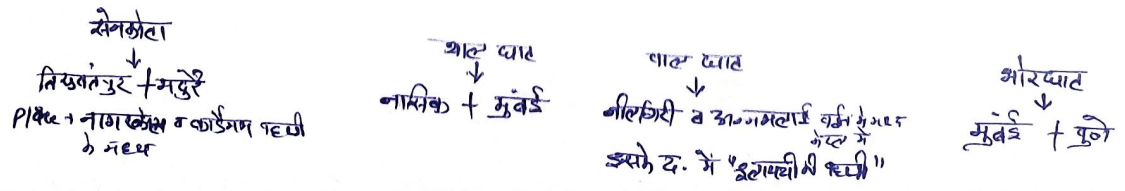 सेनकोटा
↓
तिरुवनंतपुर + मदुरै
Place → नागरकोल व कार्डेमम पहाड़ी
के मध्य
थाल घाट
↓
नासिक + मुंबई
पाल घाट
↓
नीलगिरी व अन्नामलाई पर्वत के मध्य
केरल में
इसके द. में "इलायची की पहाड़ी"
भोरघाट
↓
मुंबई + पुणे